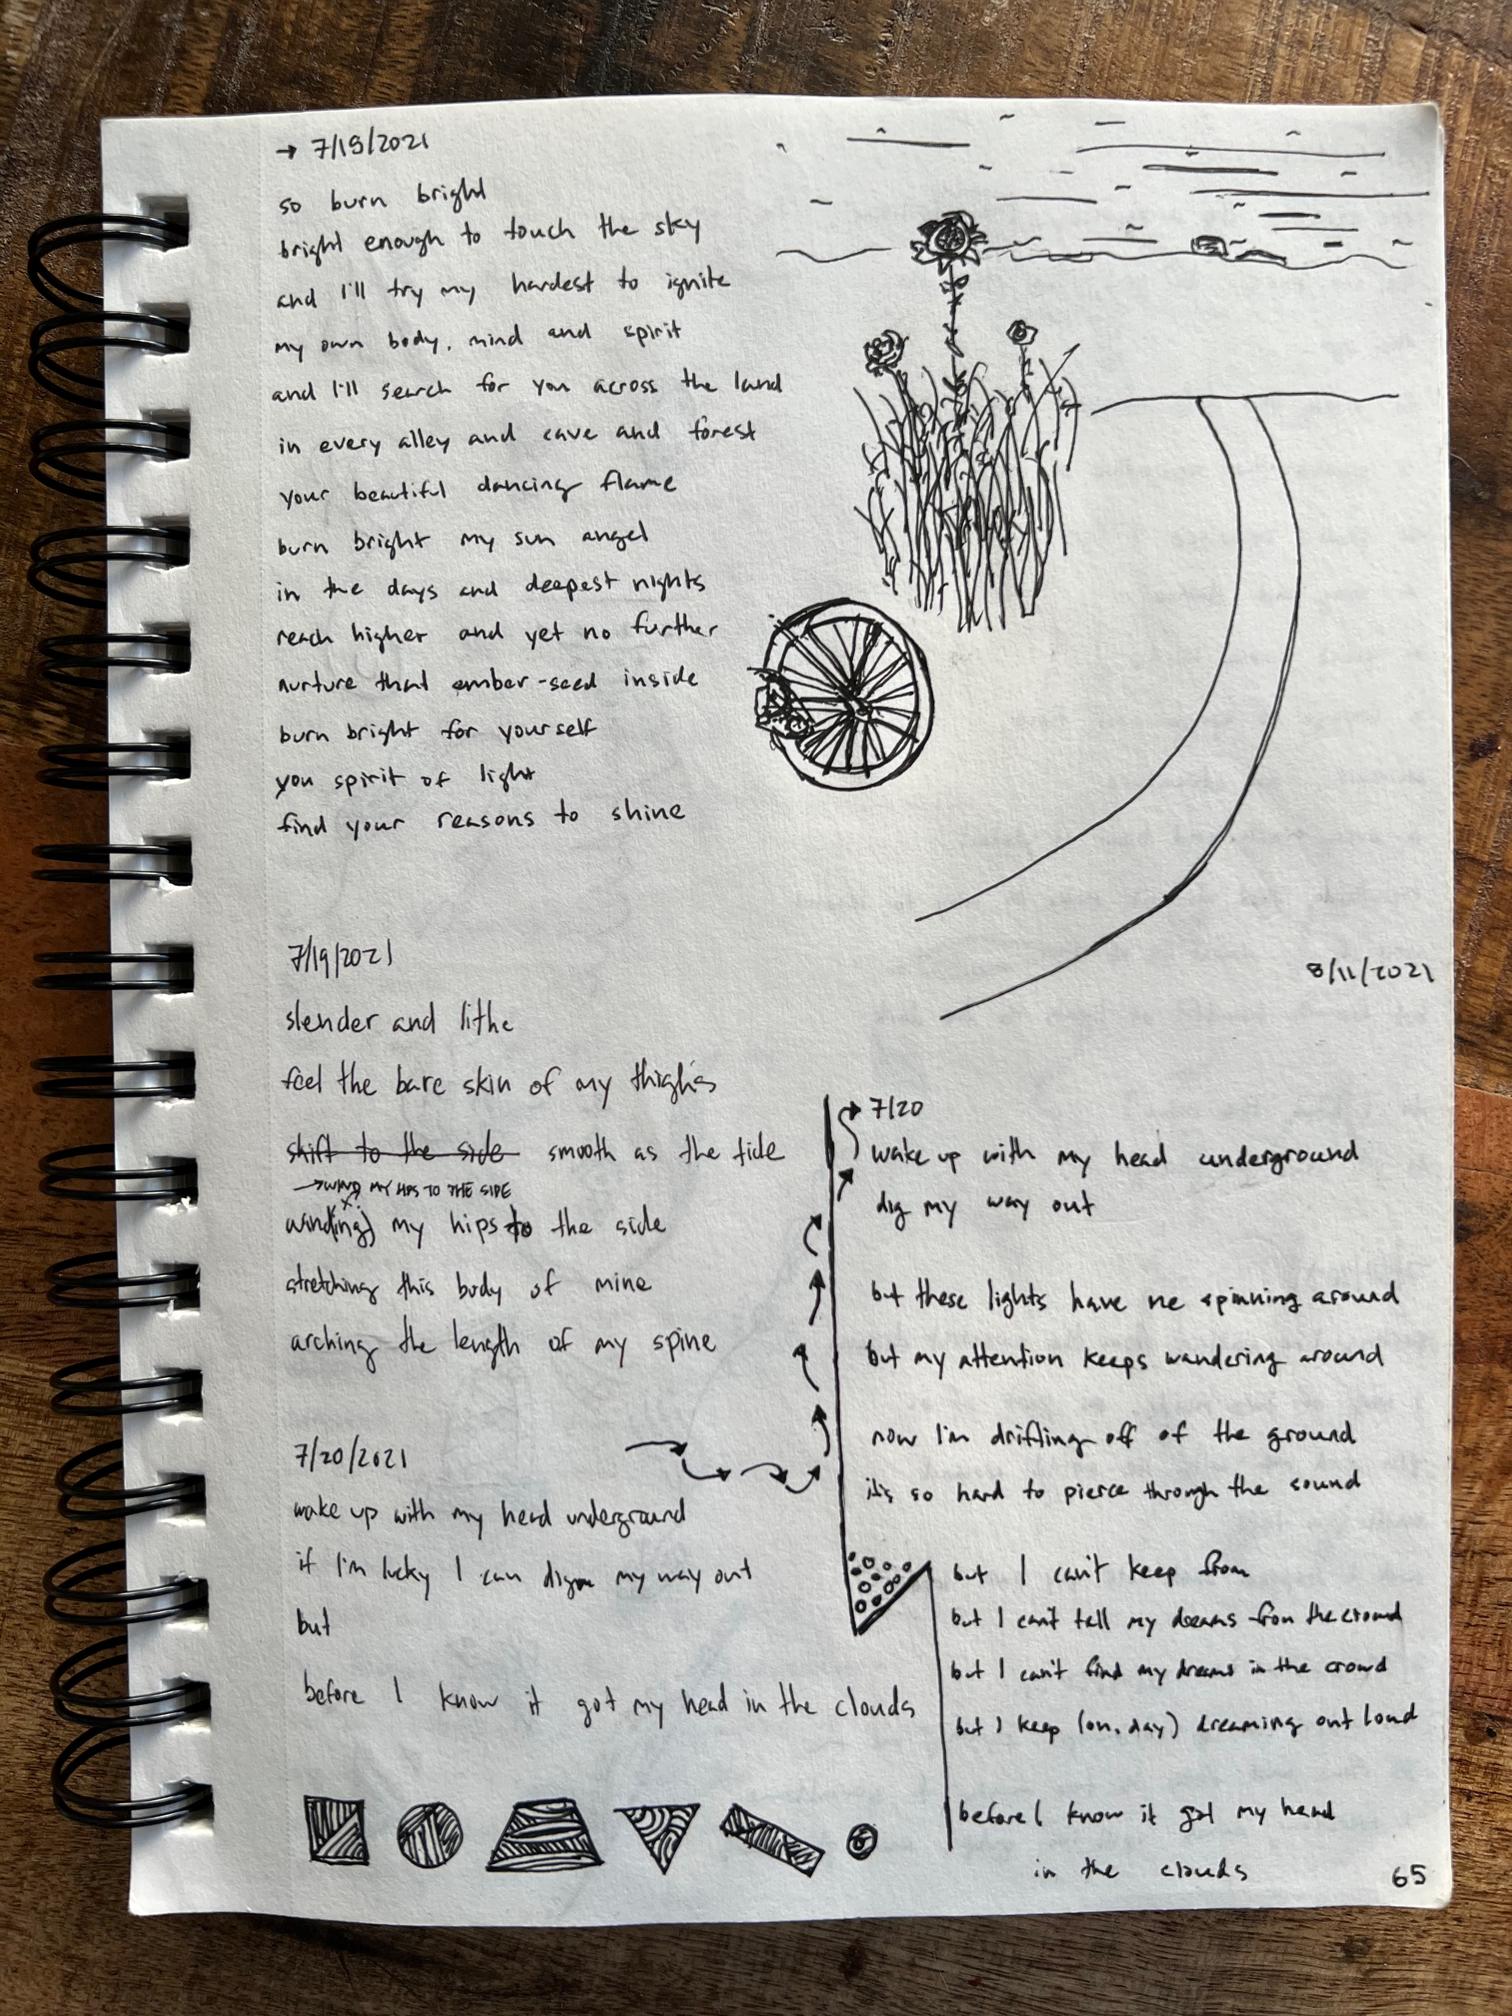 → 7/15/2021
so burn bright
bright enough to touch the sky
and I'll try my hardest to ignite
my own body, mind and spirit
and I'll search for you across the land
in every alley and cave and forest
your beautiful dancing flame
burn bright my sun angel
in the days and deepest nights
reach higher and yet no further
nurture that ember-seed inside
burn bright for yourself
you spirit of light
find your reasons to shine
8/11/2021
7/19/2021
slender and lithe
feel the bare skin of my thighs
shift to the side smooth as the tide
→ WIND MY HIPS TO THE SIDE
wind(ing) my hips to the side
stretching this body of mine
arching the length of my spine
7/20/2021
wake up with my head underground
if I'm lucky I can dig my way out
but
before I know it got my head in the clouds
→ 7/20
wake up with my head underground
dig my way out
but these lights have me spinning around
but my attention keeps wandering around
now I'm drifting off of the ground
it's so hard to pierce through the sound
but I can't keep from
but I can't tell my dreams from the crowd
but I can't find my dreams in the crowd
but I keep (on, day) dreaming out loud
before I know it got my head
in the clouds
65